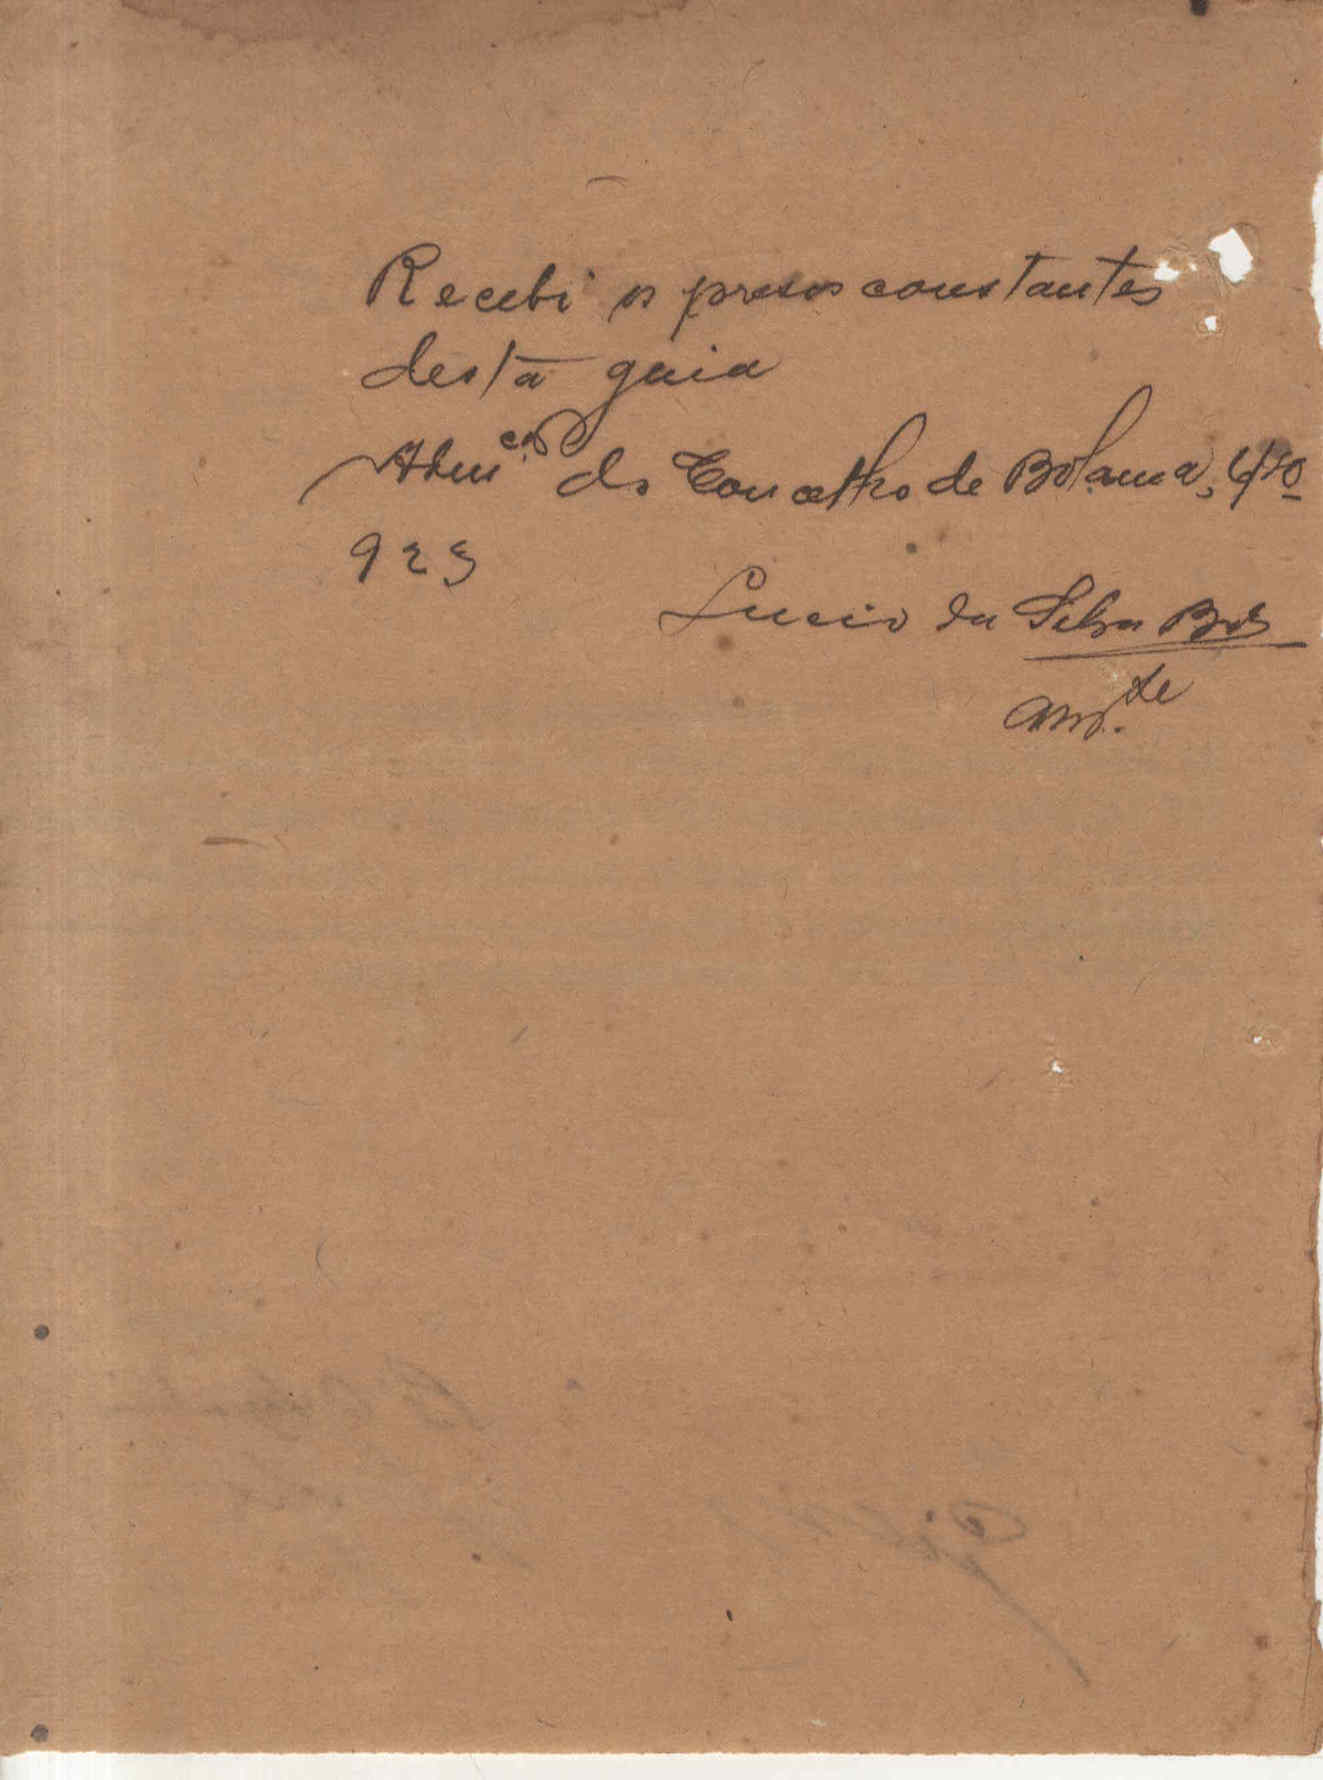 Recebi os presos constantes
desta guia
Adm.ção do Concelho de Bolama, 6/10
923
Lucio da Silva
am.te